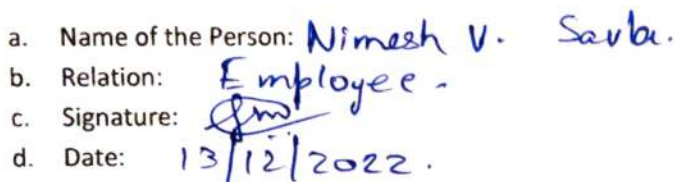 a. Name of the Person: Nimesh V. Savla.
b. Relation: Employee.
c. Signature:
d. Date: 13/12/2022.